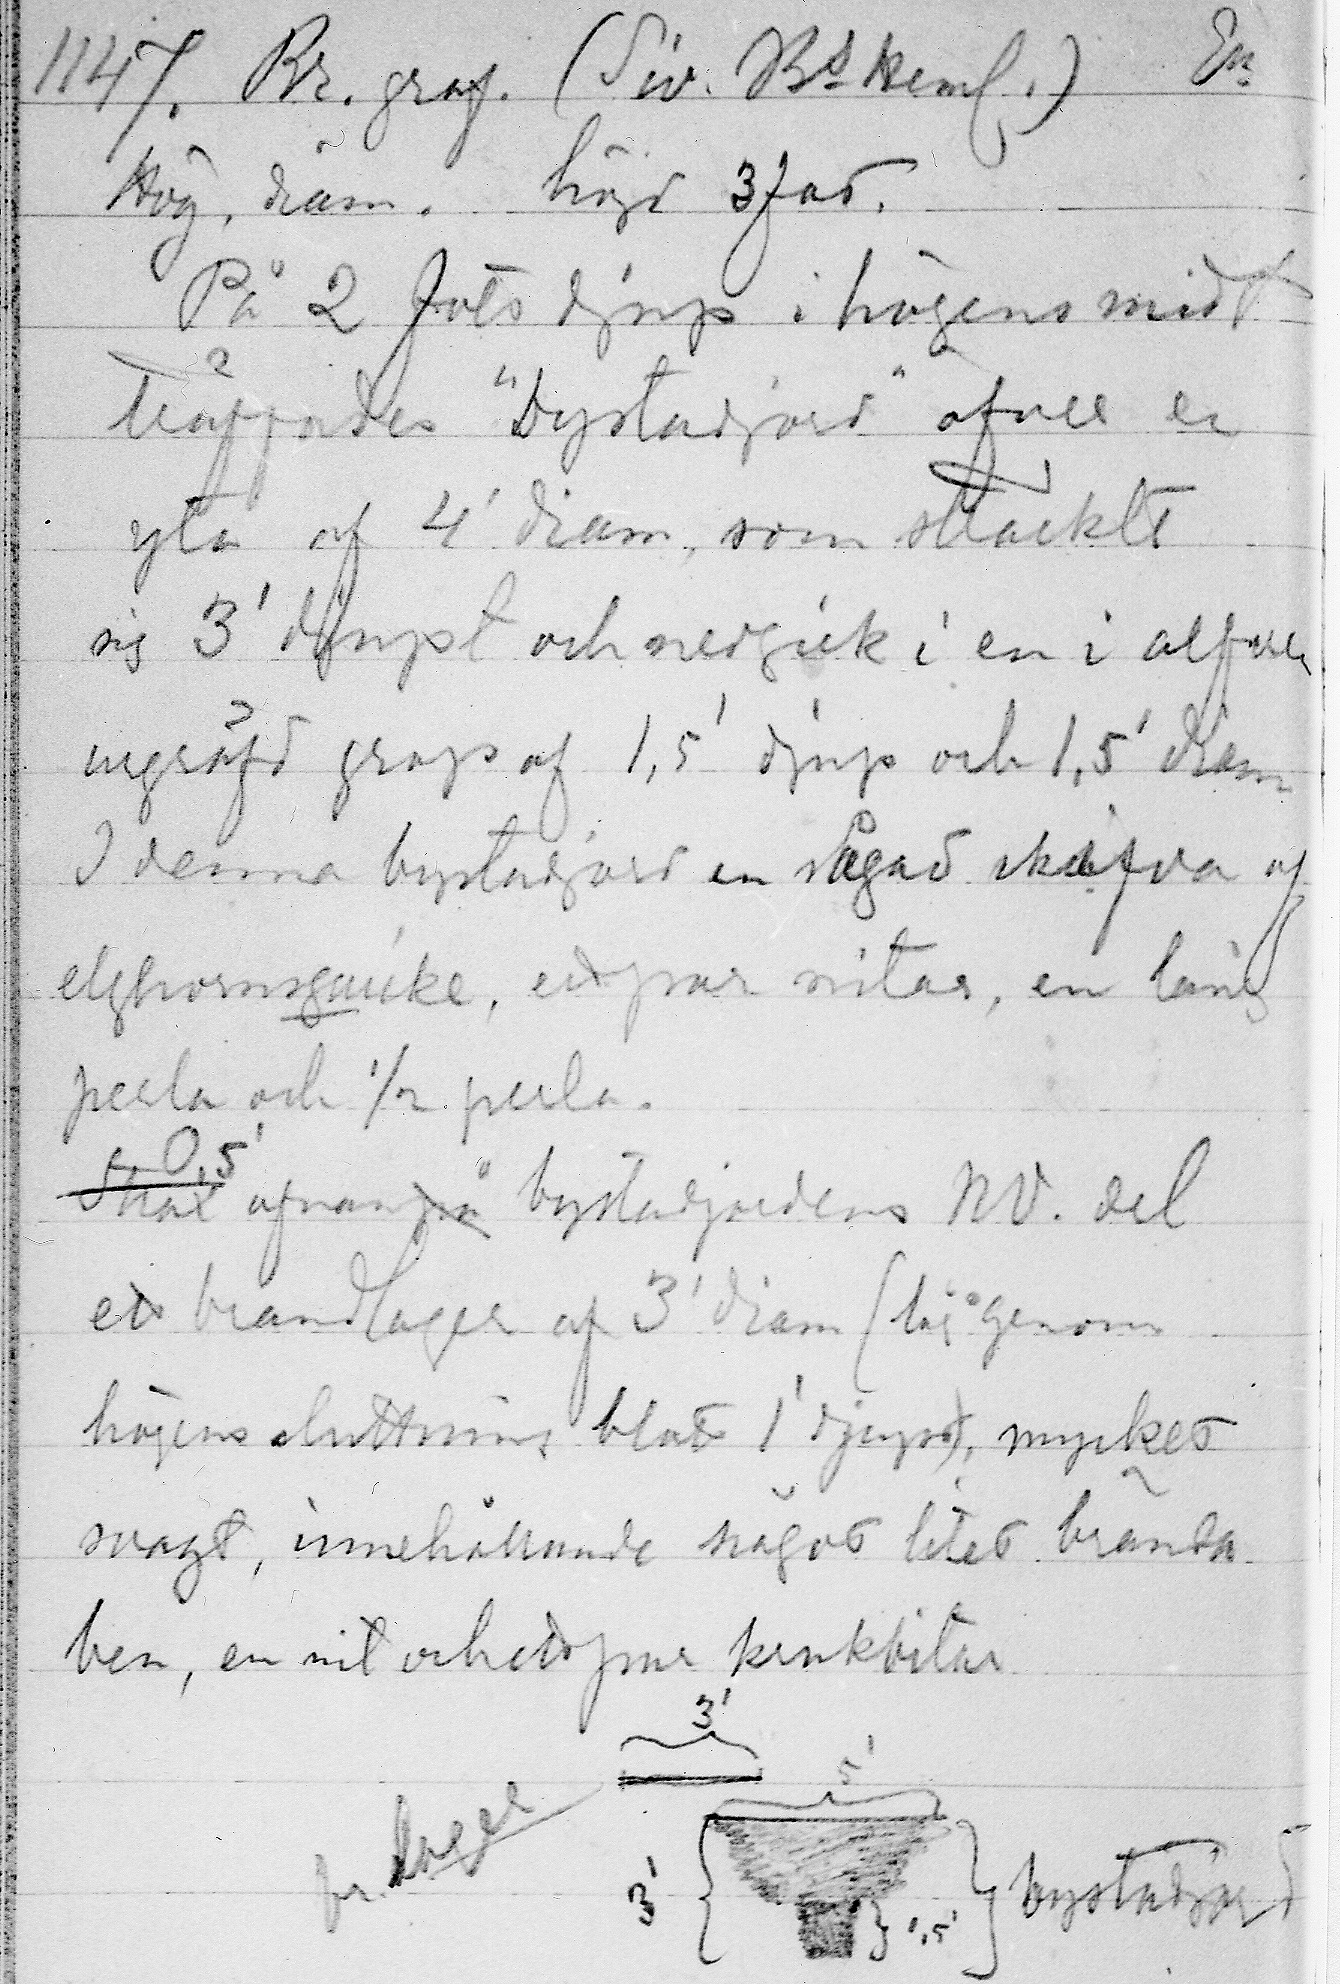 1147. Br. graf. (Div. Bs Heml.) En
Hög, diam. höjd 3 fot.
På 2 fots djup i högens midt
träffades "bystadjord" öfver en
yta af 4' diam, som sträckte
sig 3' djupt och nedgick i en i alfven
urgräfd grop af 1,5' djup och 1,5' diam
I denna bystadjord en sågad skifva af
elghorns, ett par nitar, en lång
perla och 1/2 perla.
Strax 0,5' ofvanpå bystadjordens NV. del
ett brandlager af 3' diam (låg genom
högens sluttning blott 1' djupt), mycket
svagt, innehållande något litet brända
ben, en nit och ett par krukbitar
3'
5'
br. lager
3' 1,5' bystadjord